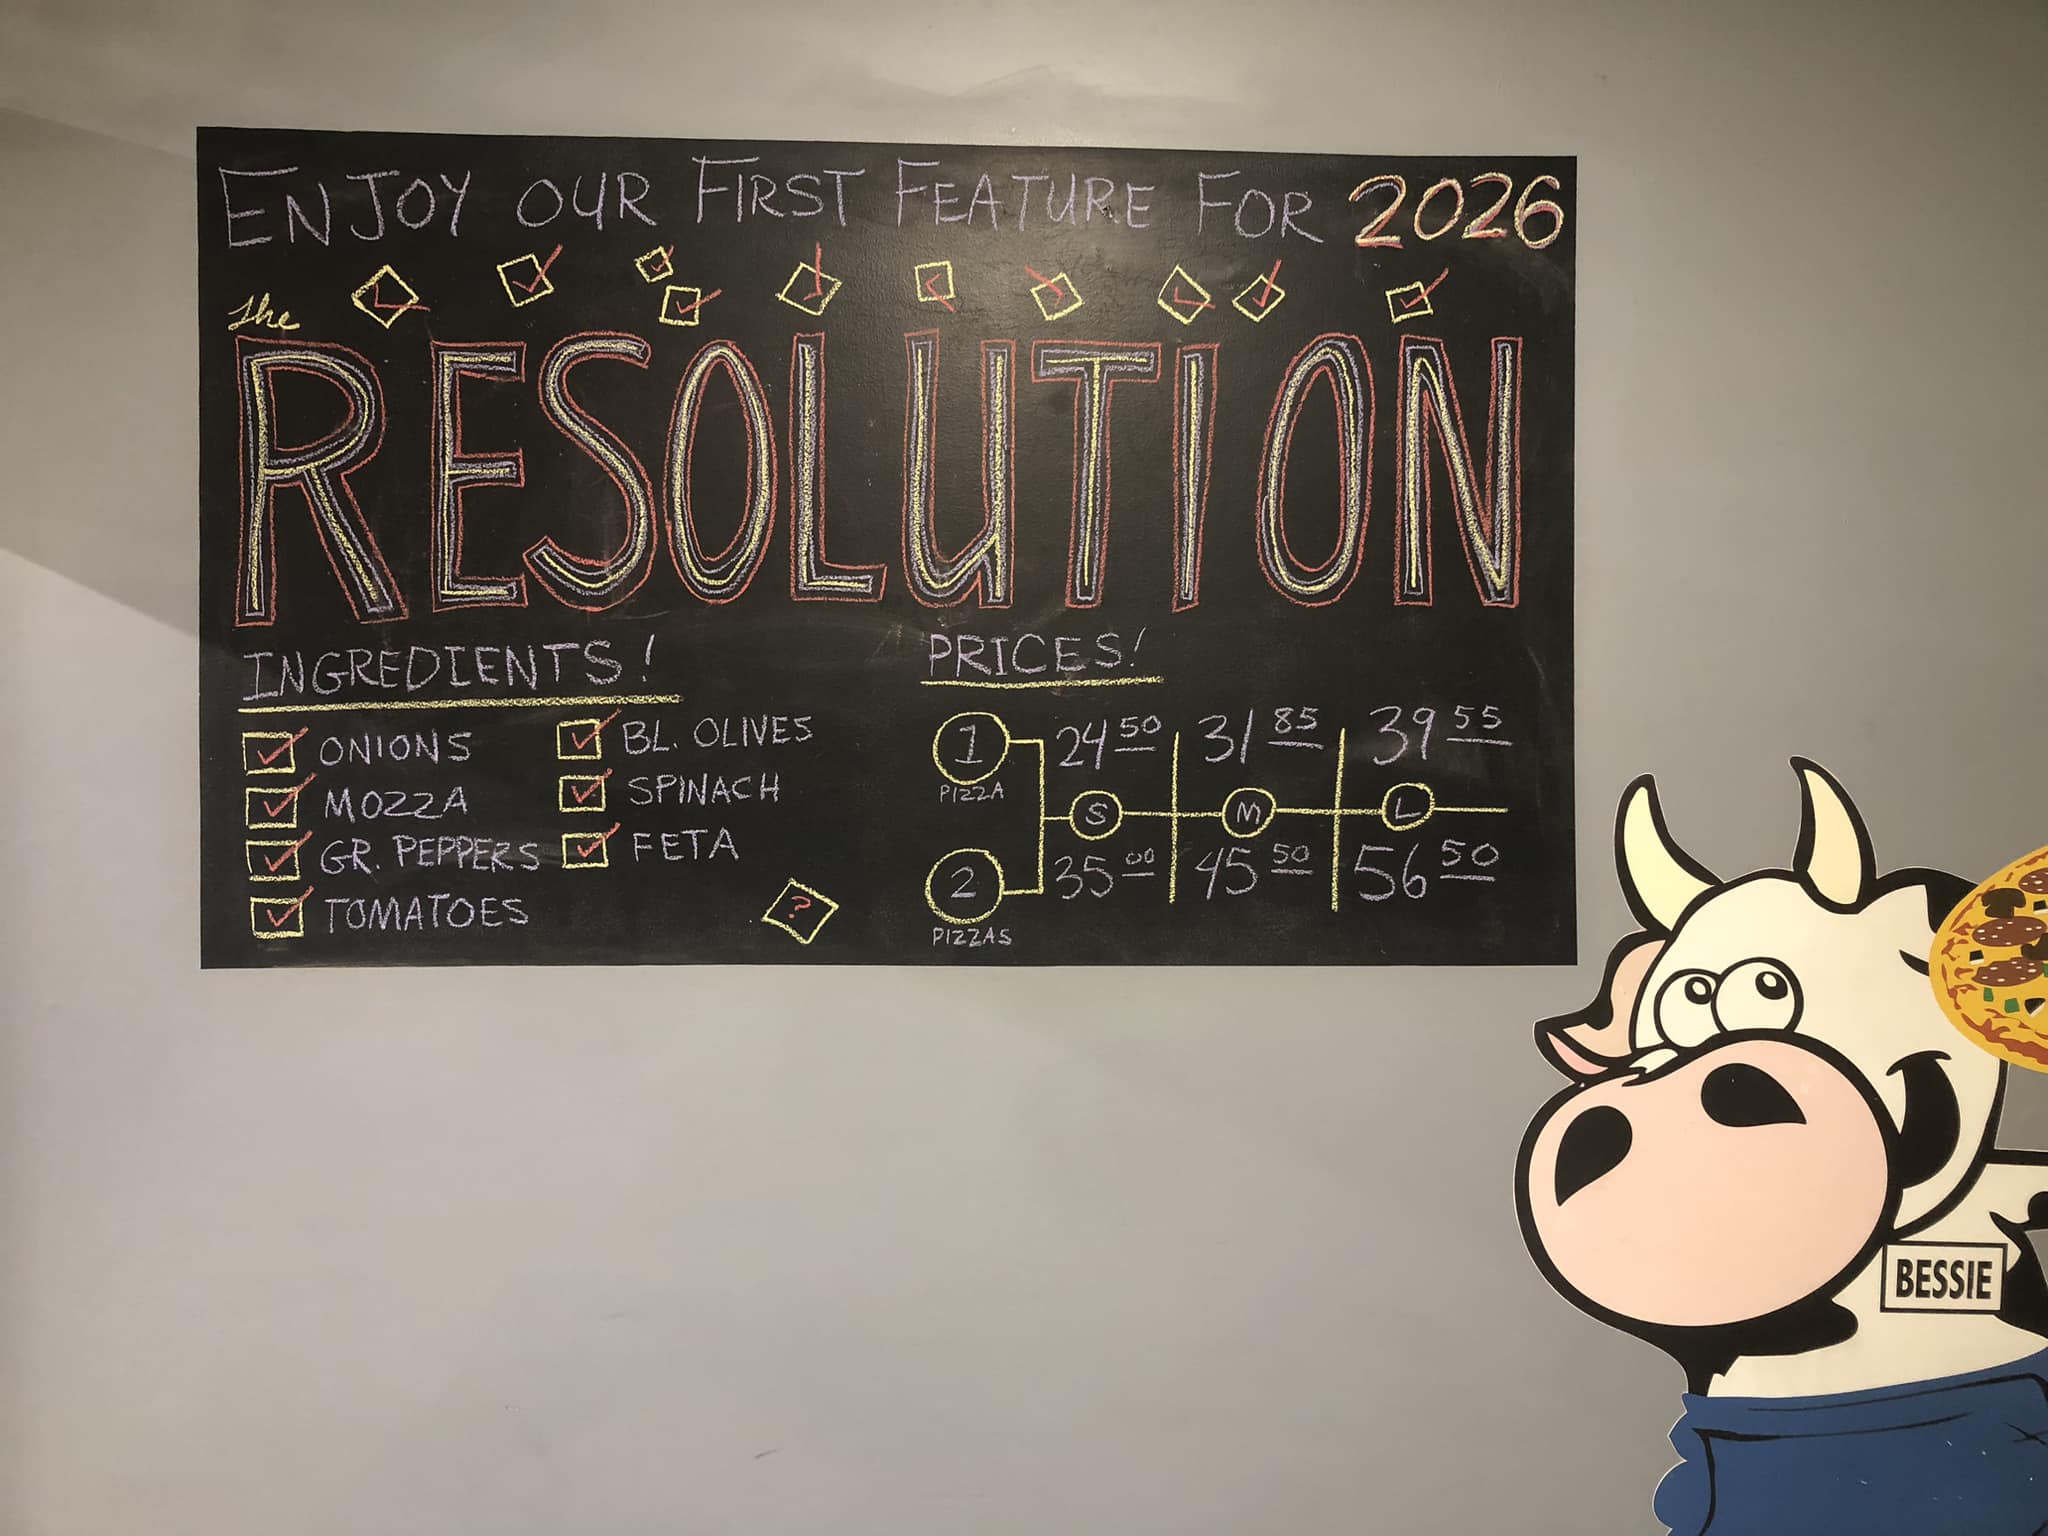 ENJOY OUR FIRST FEATURE FOR 2026
the
RESOLUTION
INGREDIENTS!
ONIONS
MOZZA
GR. PEPPERS
TOMATOES
BL. OLIVES
SPINACH
FETA
?
PRICES!
1 PIZZA
24 50 31 85 39 55
S M L
2 PIZZAS
35 00 45 50 56 50
BESSIE